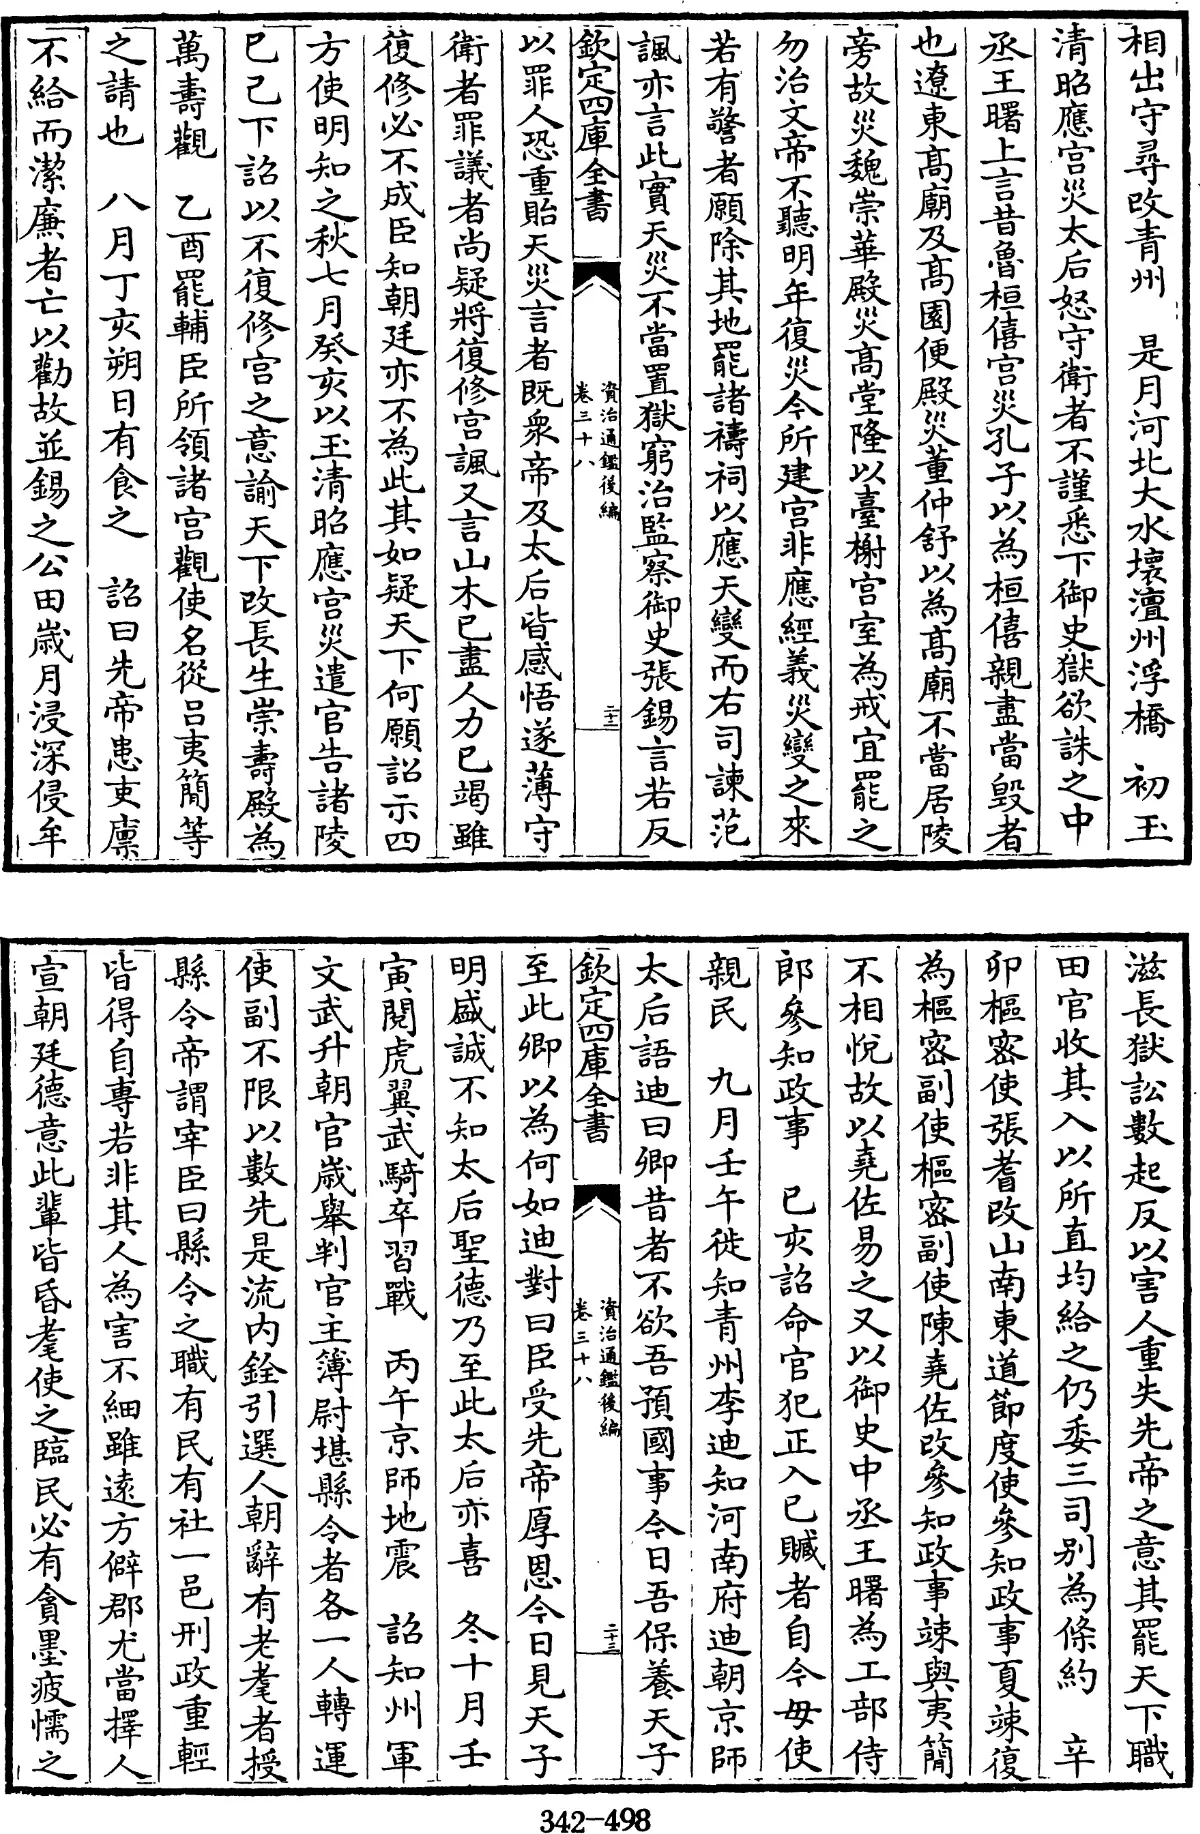 相出守尋改青州　是月河北大水壞澶州浮橋　初玉
清昭應宫災太后怒守衛者不謹悉下御史獄欲誅之中
丞王曙上言昔魯桓僖宫災孔子以為桓僖親盡當毀者
也遼東髙廟及髙園便殿災董仲舒以為髙廟不當居陵
旁故災魏崇華殿災髙堂隆以臺榭宫室為戒宜罷之
勿治文帝不聽明年復災今所建宫非應經義災變之來
若有警者願除其地罷諸禱祠以應天變而右司諫范
諷亦言此實天災不當置獄窮治監察御史張錫言若反
欽定四庫全書
資治通鑑後編
卷三十八
二十二
以罪人恐重貽天災言者既衆帝及太后皆感悟遂薄守
衛者罪議者尚疑將復修宫諷又言山木已盡人力已竭雖
復修必不成臣知朝廷亦不為此其如疑天下何願詔示四
方使明知之秋七月癸亥以玉清昭應宫災遣官告諸陵
已已下詔以不復修宫之意諭天下改長生崇壽殿為
萬壽觀　乙酉罷輔臣所領諸宫觀使名從吕夷簡等
之請也　八月丁亥朔日有食之　詔曰先帝患吏廪
不給而潔亷者亡以勸故並錫之公田歲月浸深侵牟
滋長獄訟數起反以害人重失先帝之意其罷天下職
田官收其入以所直均給之仍委三司别為條約　辛
卯樞密使張耆改山南東道節度使參知政事夏竦復
為樞密副使樞密副使陳堯佐改參知政事竦與夷簡
不相悅故以堯佐易之又以御史中丞王曙為工部侍
郎參知政事　已亥詔命官犯正入已贓者自今毋使
親民　九月壬午徙知青州李迪知河南府迪朝京師
太后語迪曰卿昔者不欲吾預國事今日吾保養天子
欽定四庫全書
資治通鑑後編
卷三十八
二十三
至此卿以為何如迪對曰臣受先帝厚恩今日見天子
明盛誠不知太后聖德乃至此太后亦喜　冬十月壬
寅閱虎翼武騎卒習戰　丙午京師地震　詔知州軍
文武升朝官歲舉判官主簿尉堪縣令者各一人轉運
使副不限以數先是流内銓引選人朝辭有老耄者授
縣令帝謂宰臣曰縣令之職有民有社一邑刑政重輕
皆得自專若非其人為害不細雖逺方僻郡尤當擇人
宣朝廷德意此輩皆昏耄使之臨民必有貪墨疲懦之
342-498